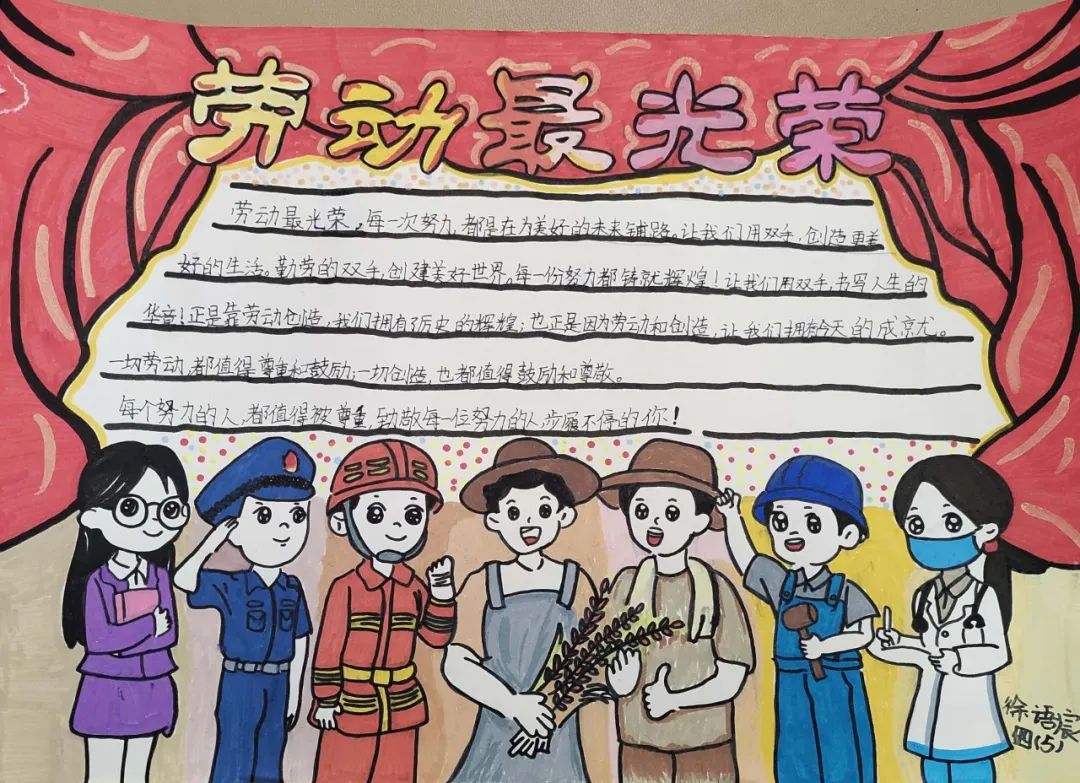 劳动最光荣
劳动最光荣。每一次努力,都是在为美好的未来铺路。让我们用双手,创造更美
好的生活。勤劳的双手,创建美好世界。每一份努力都铸就辉煌!让我们用双手,书写人生的
华章!正是靠劳动创造,我们拥有了历史的辉煌;也正是因为劳动和创造,让我们拥有今天的成就。
一切劳动,都值得尊重和鼓励;一切创造,也都值得鼓励和尊敬。
每个努力的人,都值得被尊重,致敬每一位努力的人步履不停的你!
徐语宸
四(5)